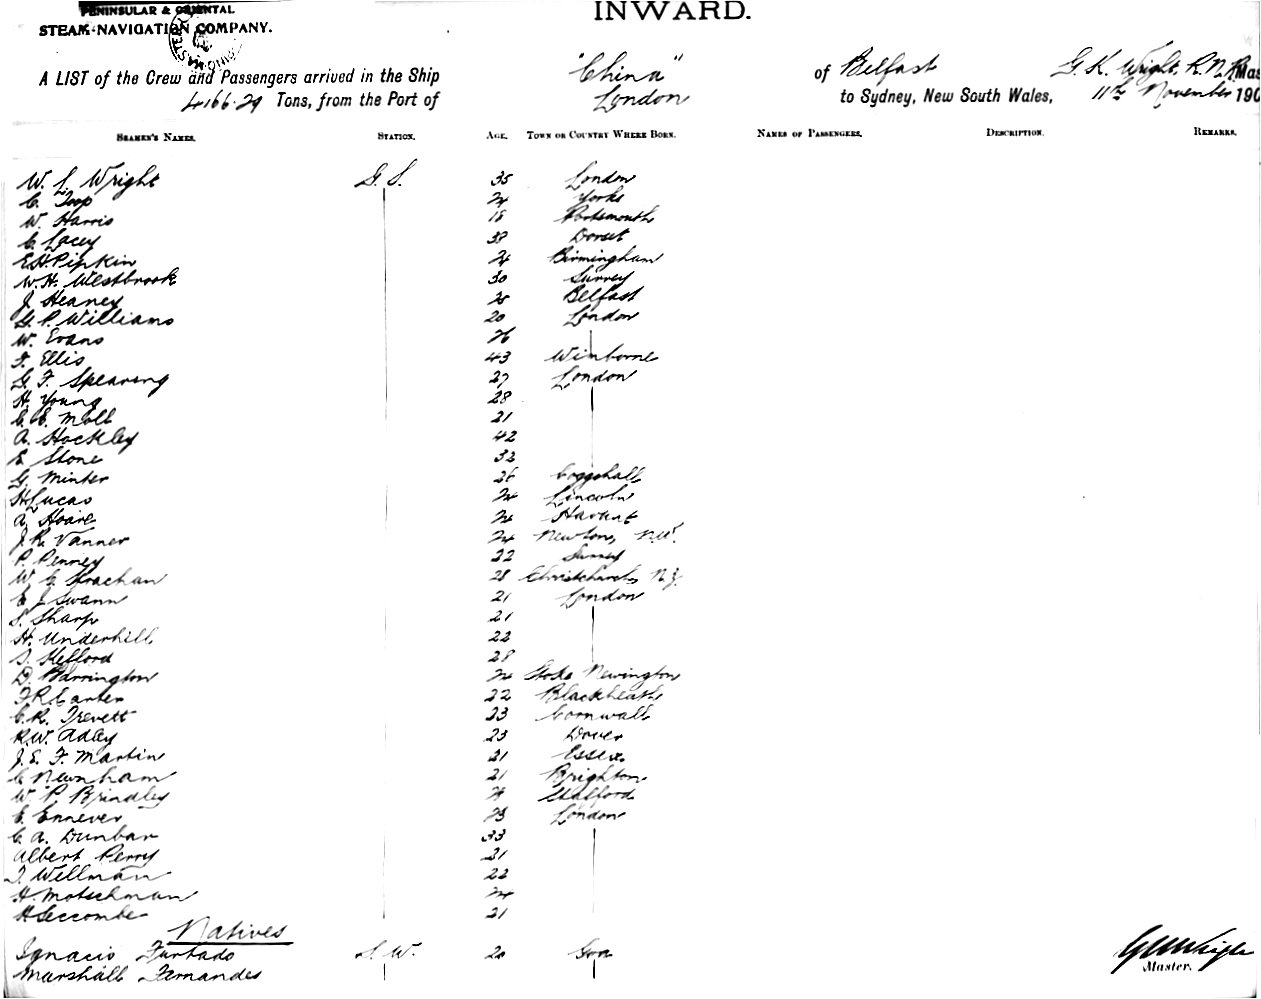 PENINSULAR & ORIENTAL
STEAM NAVIGATION COMPANY.
INWARD.
A LIST of the Crew and Passengers arrived in the Ship "China" of Belfast G. K. Wright, R.N.R. Mas
4166.29 Tons, from the Port of London to Sydney, New South Wales, 11th November 190
SEAMEN'S NAMES. STATION. AGE. TOWN OR COUNTRY WHERE BORN. NAMES OF PASSENGERS. DESCRIPTION. REMARKS.
W. L. Wright G. S. 35 London
C. Toop 24 Yorks
W. Harris 18 Portsmouth
C. Lacey 38 Dorset
E. H. Pipkin 24 Birmingham
W. H. Westbrook 30 Surrey
J. Heaney 25 Belfast
G. P. Williams 20 London
W. Evans 26
F. Ellis 43 Winborne
G. F. Spearing 27 London
H. Young 28
C. E. Moll 21
A. Hockley 42
E. Stone 32
G. Minter 26 Coggshall
H. Lucas 24 Lincoln
A. Hoare 24 Havant
J. R. Vanner 24 Newton,
P. Penney 22 Surrey
W. C. Strachan 28 Christchurch, N.Z.
E. J. Swann 21 London
S. Sharp 21
H. Underhill 22
Kefford 28
D. Barrington 24 Stoke Newington
F. R. Carter 22 Blackheath
C. R. Trevett 23 Cornwall
R. W. Adley 23 Dover
J. E. F. Martin 21 Essex
C. Newnham 21 Brighton
W. P. Brindley Stafford
E. Ennever 23 London
C. A. Dunbar 33
Albert Perry 21
J. Wellman 22
H. Motschman 24
H. Seccombe 21
Natives
Ignacio Furtado S. W. 20 Goa
Marshall Fernandes
G K Wright
Master.